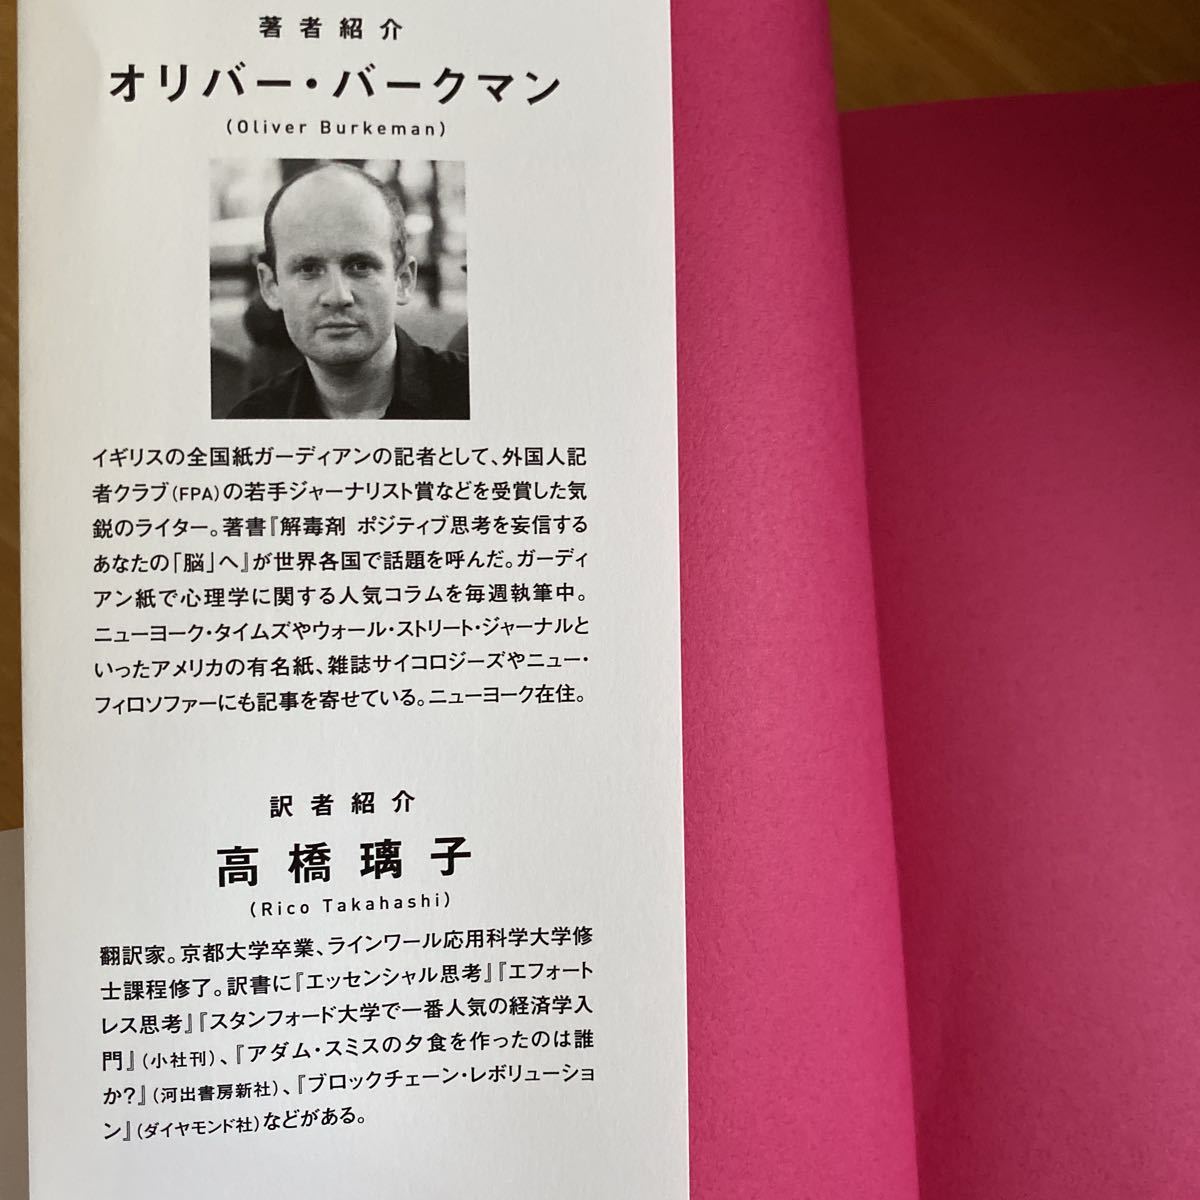 著者紹介
オリバー・バークマン
(Oliver Burkeman)
イギリスの全国紙ガーディアンの記者として、外国人記
者クラブ(FPA)の若手ジャーナリスト賞などを受賞した気
鋭のライター。著書『解毒剤 ポジティブ思考を妄信する
あなたの「脳」へ』が世界各国で話題を呼んだ。ガーディ
アン紙で心理学に関する人気コラムを毎週執筆中。
ニューヨーク・タイムズやウォール・ストリート・ジャーナルと
いったアメリカの有名紙、雑誌サイコロジーズやニュー・
フィロソファーにも記事を寄せている。ニューヨーク在住。
訳者紹介
高橋璃子
(Rico Takahashi)
翻訳家。京都大学卒業、ラインワール応用科学大学修
士課程修了。訳書に『エッセンシャル思考』『エフォート
レス思考』『スタンフォード大学で一番人気の経済学入
門』(小社刊)、『アダム・スミスの夕食を作ったのは誰
か?』(河出書房新社)、『ブロックチェーン・レボリューショ
ン』(ダイヤモンド社)などがある。